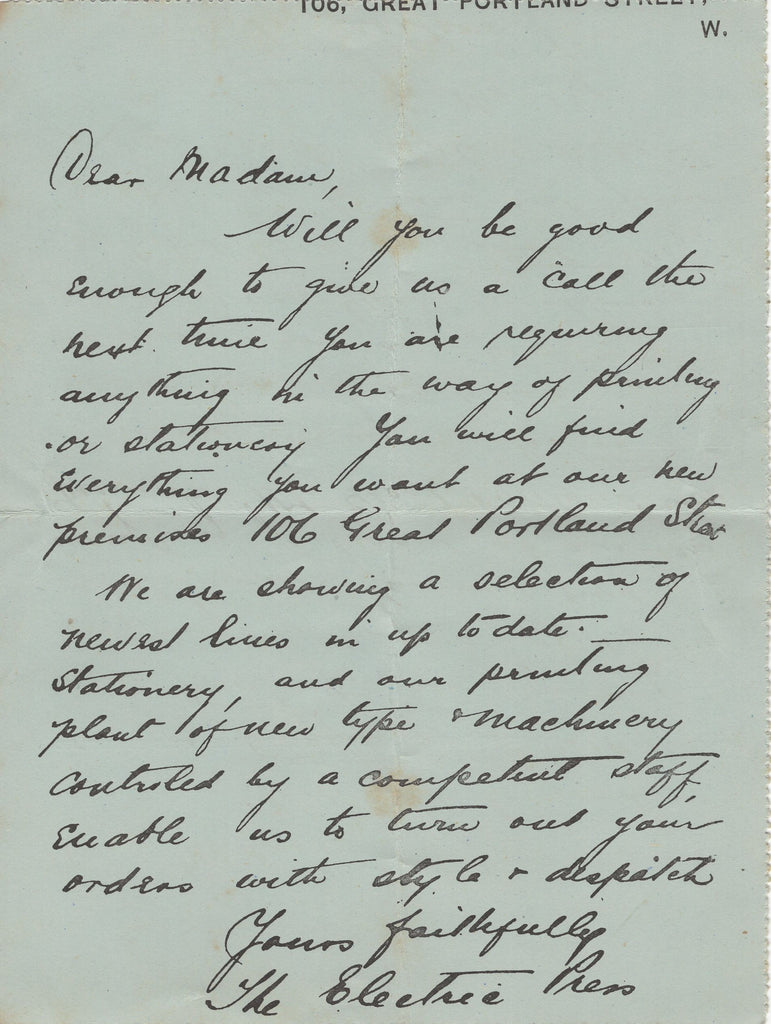 106, GREAT PORTLAND STREET,
W.
Dear Madam,
Will you be good
enough to give us a call the
next time you are requiring
anything in the way of printing
or stationery You will find
everything you want at our new
premises 106 Great Portland Street
We are showing a selection of
newest lines in up to date
Stationery, and our printing
plant of new type & machinery
controled by a competent staff,
enable us to turn out your
orders with style & despatch
Yours faithfully
The Electric Press